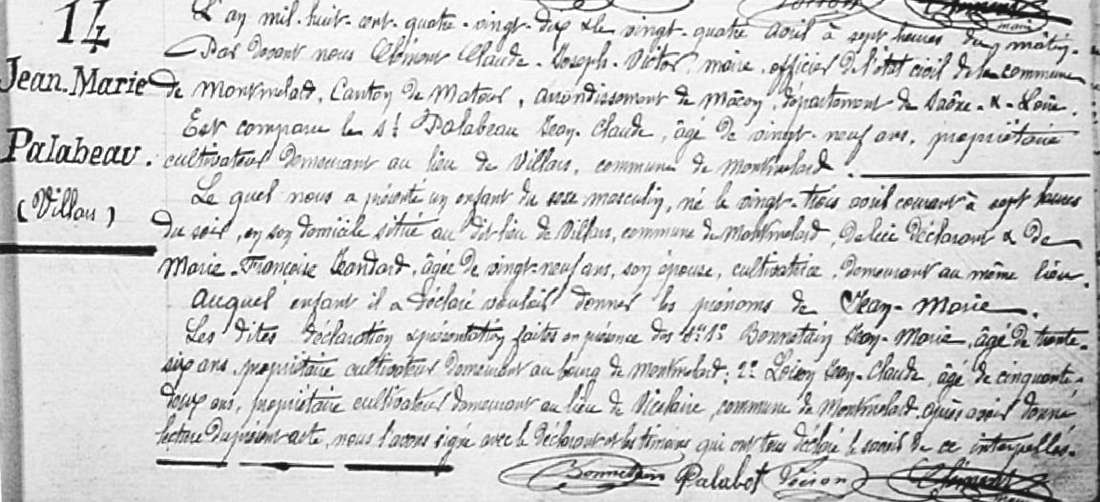 14
Jean-Marie
Palabeau.
(Villars)
L'an mil huit-cent-quatre-vingt-dix & le vingt-quatre avril à sept heures du matin.
Par devant nous Clément Claude-Joseph-Victor, maire, officier de l'état civil de la commune
de Montmelard, Canton de Matour, arrondissement de Mâcon, département de Saône-&-Loire.
Est comparu le sr Palabeau Jean-Claude, âgé de vingt-neuf ans, propriétaire
cultivateur demeurant au lieu de Villars, commune de Montmelard.
Le quel nous a présenté un enfant du sexe masculin, né le vingt-trois avril courant à sept heures
du soir, en son domicile situé au dit lieu de Villars, commune de Montmelard, de lui déclarant & de
Marie-Françoise Jandard, âgée de vingt-neuf ans, son épouse, cultivatrice, demeurant au même lieu.
Auquel enfant il a déclaré vouloir donner les prénoms de Jean-Marie.
Les dites déclaration & présentation faites en présence des 1er sr Bonnetain Jean-Marie, âgé de trente-
six ans, propriétaire cultivateur demeurant au bourg de Montmelard; 2e Loison Jean-Claude, âgé de cinquante-
deux ans, propriétaire cultivateur demeurant au lieu de commune de Montmelard. Après avoir donné
lecture du présent acte, nous l'avons signé avec le déclarant et les témoins qui ont tous déclaré le savoir de ce interpellés.
Bonnetain Palabot Loison Clément